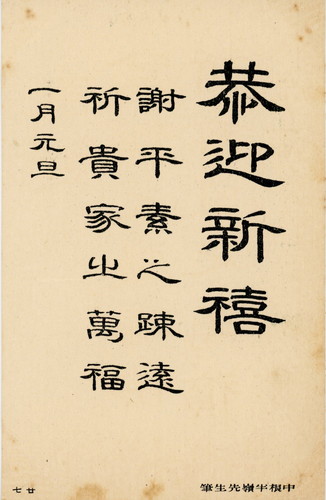 恭迎新禧
謝平素之疎遠
祈貴家之萬福
一月元旦
中根半嶺先生筆
廿七